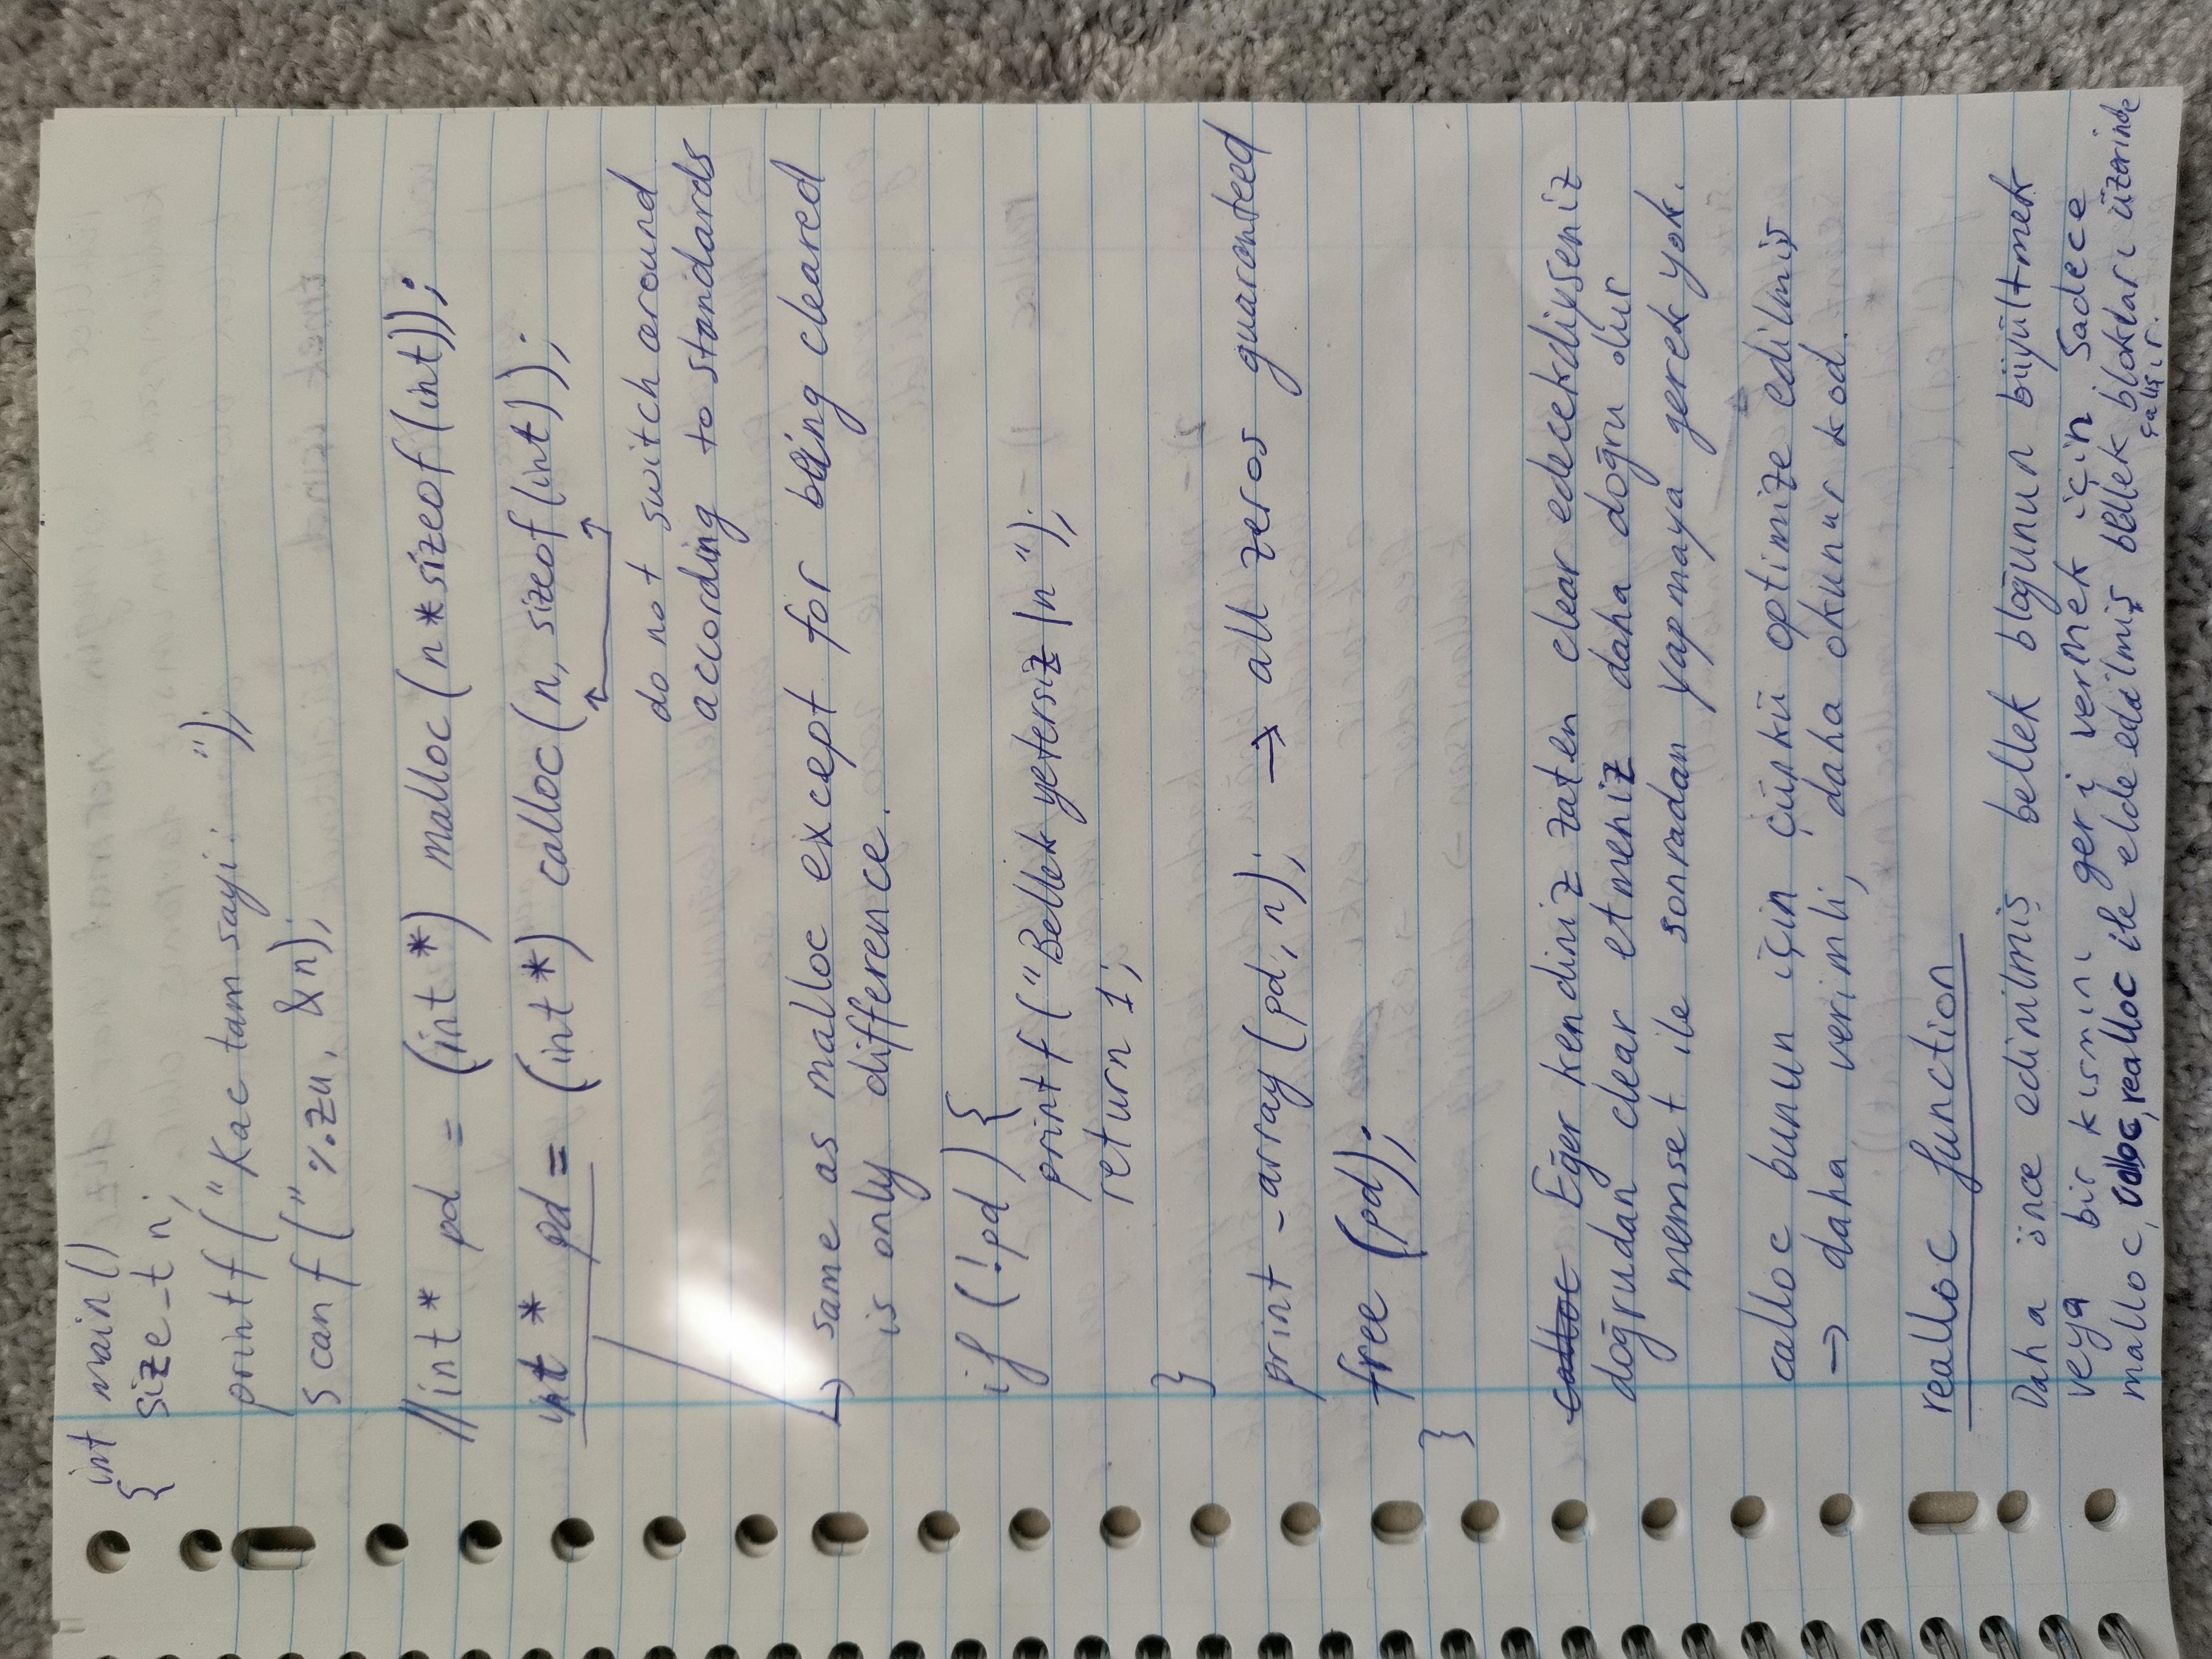 int main()
{ size_t n;
printf("Kac tam sayi: ");
scanf("%zu, &n);
//int* pd = (int *) malloc(n*sizeof(int));
int * pd = (int*) calloc(n, sizeof(int));
do not switch around
according to standards
↳ same as malloc except for being cleared
is only difference.
if (!pd) {
printf("Bellek yetersiz \n");
return 1;
}
print_array(pd, n); → all zeros guaranteed
free (pd);
}
calloc Eğer kendiniz zaten clear edecekdiyseniz
doğrudan clear etmeniz daha doğru olur
memset ile sonradan yapmaya gerek yok.
calloc bunun için çünkü optimize edilmiş
→ daha verimli, daha okunur kod.
realloc function
Daha önce edinilmiş bellek bloğunun büyültmek
veya bir kısmını geri vermek için. Sadece
malloc, calloc, realloc ile elde edilmiş bellek blokları üzerinde
çalışır.